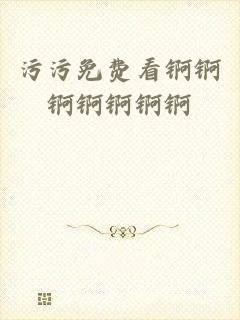 污污免费看锕锕
锕锕锕锕锕